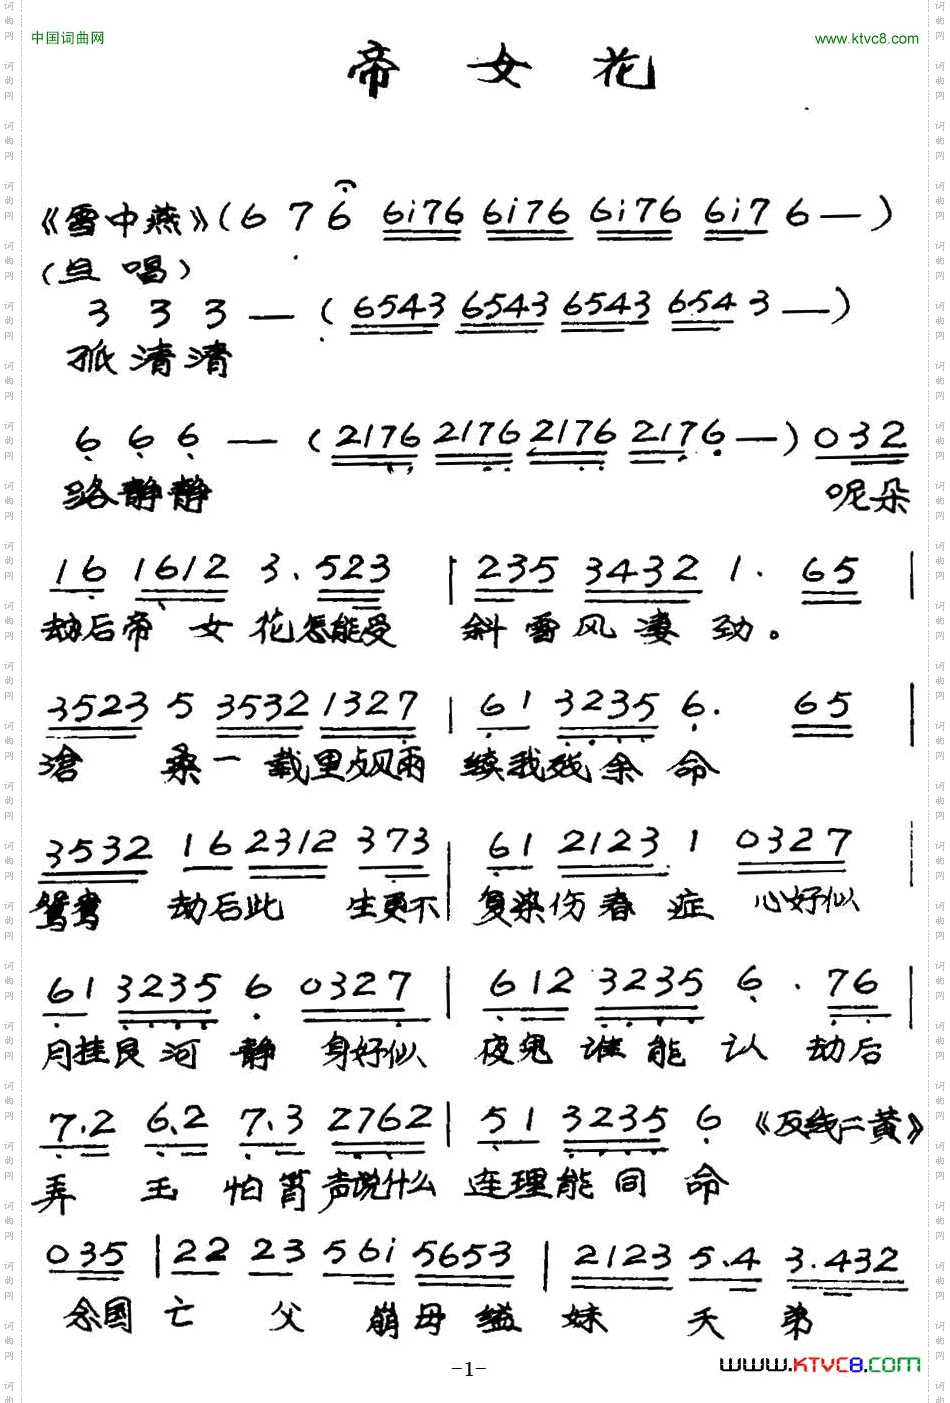 中国词曲网 www.ktvc8.com
帝女花
《雪中燕》(6 7 6 6i76 6i76 6i76 6i7 6 —)
(旦唱)
3 3 3 — (6543 6543 6543 654 3 —)
孤清清
6 6 6 — (2176 2176 2176 217 6 —) 032
路静静 呢朵
16 1612 3. 523 | 235 3432 1. 65 |
劫后帝女花怎能受 斜雪风凄劲。
3523 5 3532 1327 | 61 3235 6. 65 |
沧桑一载里点风雨 续我残余命
3532 16 2312 373 | 61 2123 1 0327
鸳鸯劫后此生更不 复染伤春症 心好似
61 3235 6 0327 | 612 3235 6. 76 |
月挂艮河静 身好似 夜鬼谁能认 劫后
7.2 6.2 7.3 2762 | 51 3235 6 《反线二黄》
弄玉怕箫声说什么 连理能同命
035 | 22 23 56i 5653 | 2123 5.4 3.432
念国亡父崩母缢妹夭弟
-1- www.KTVC8.com